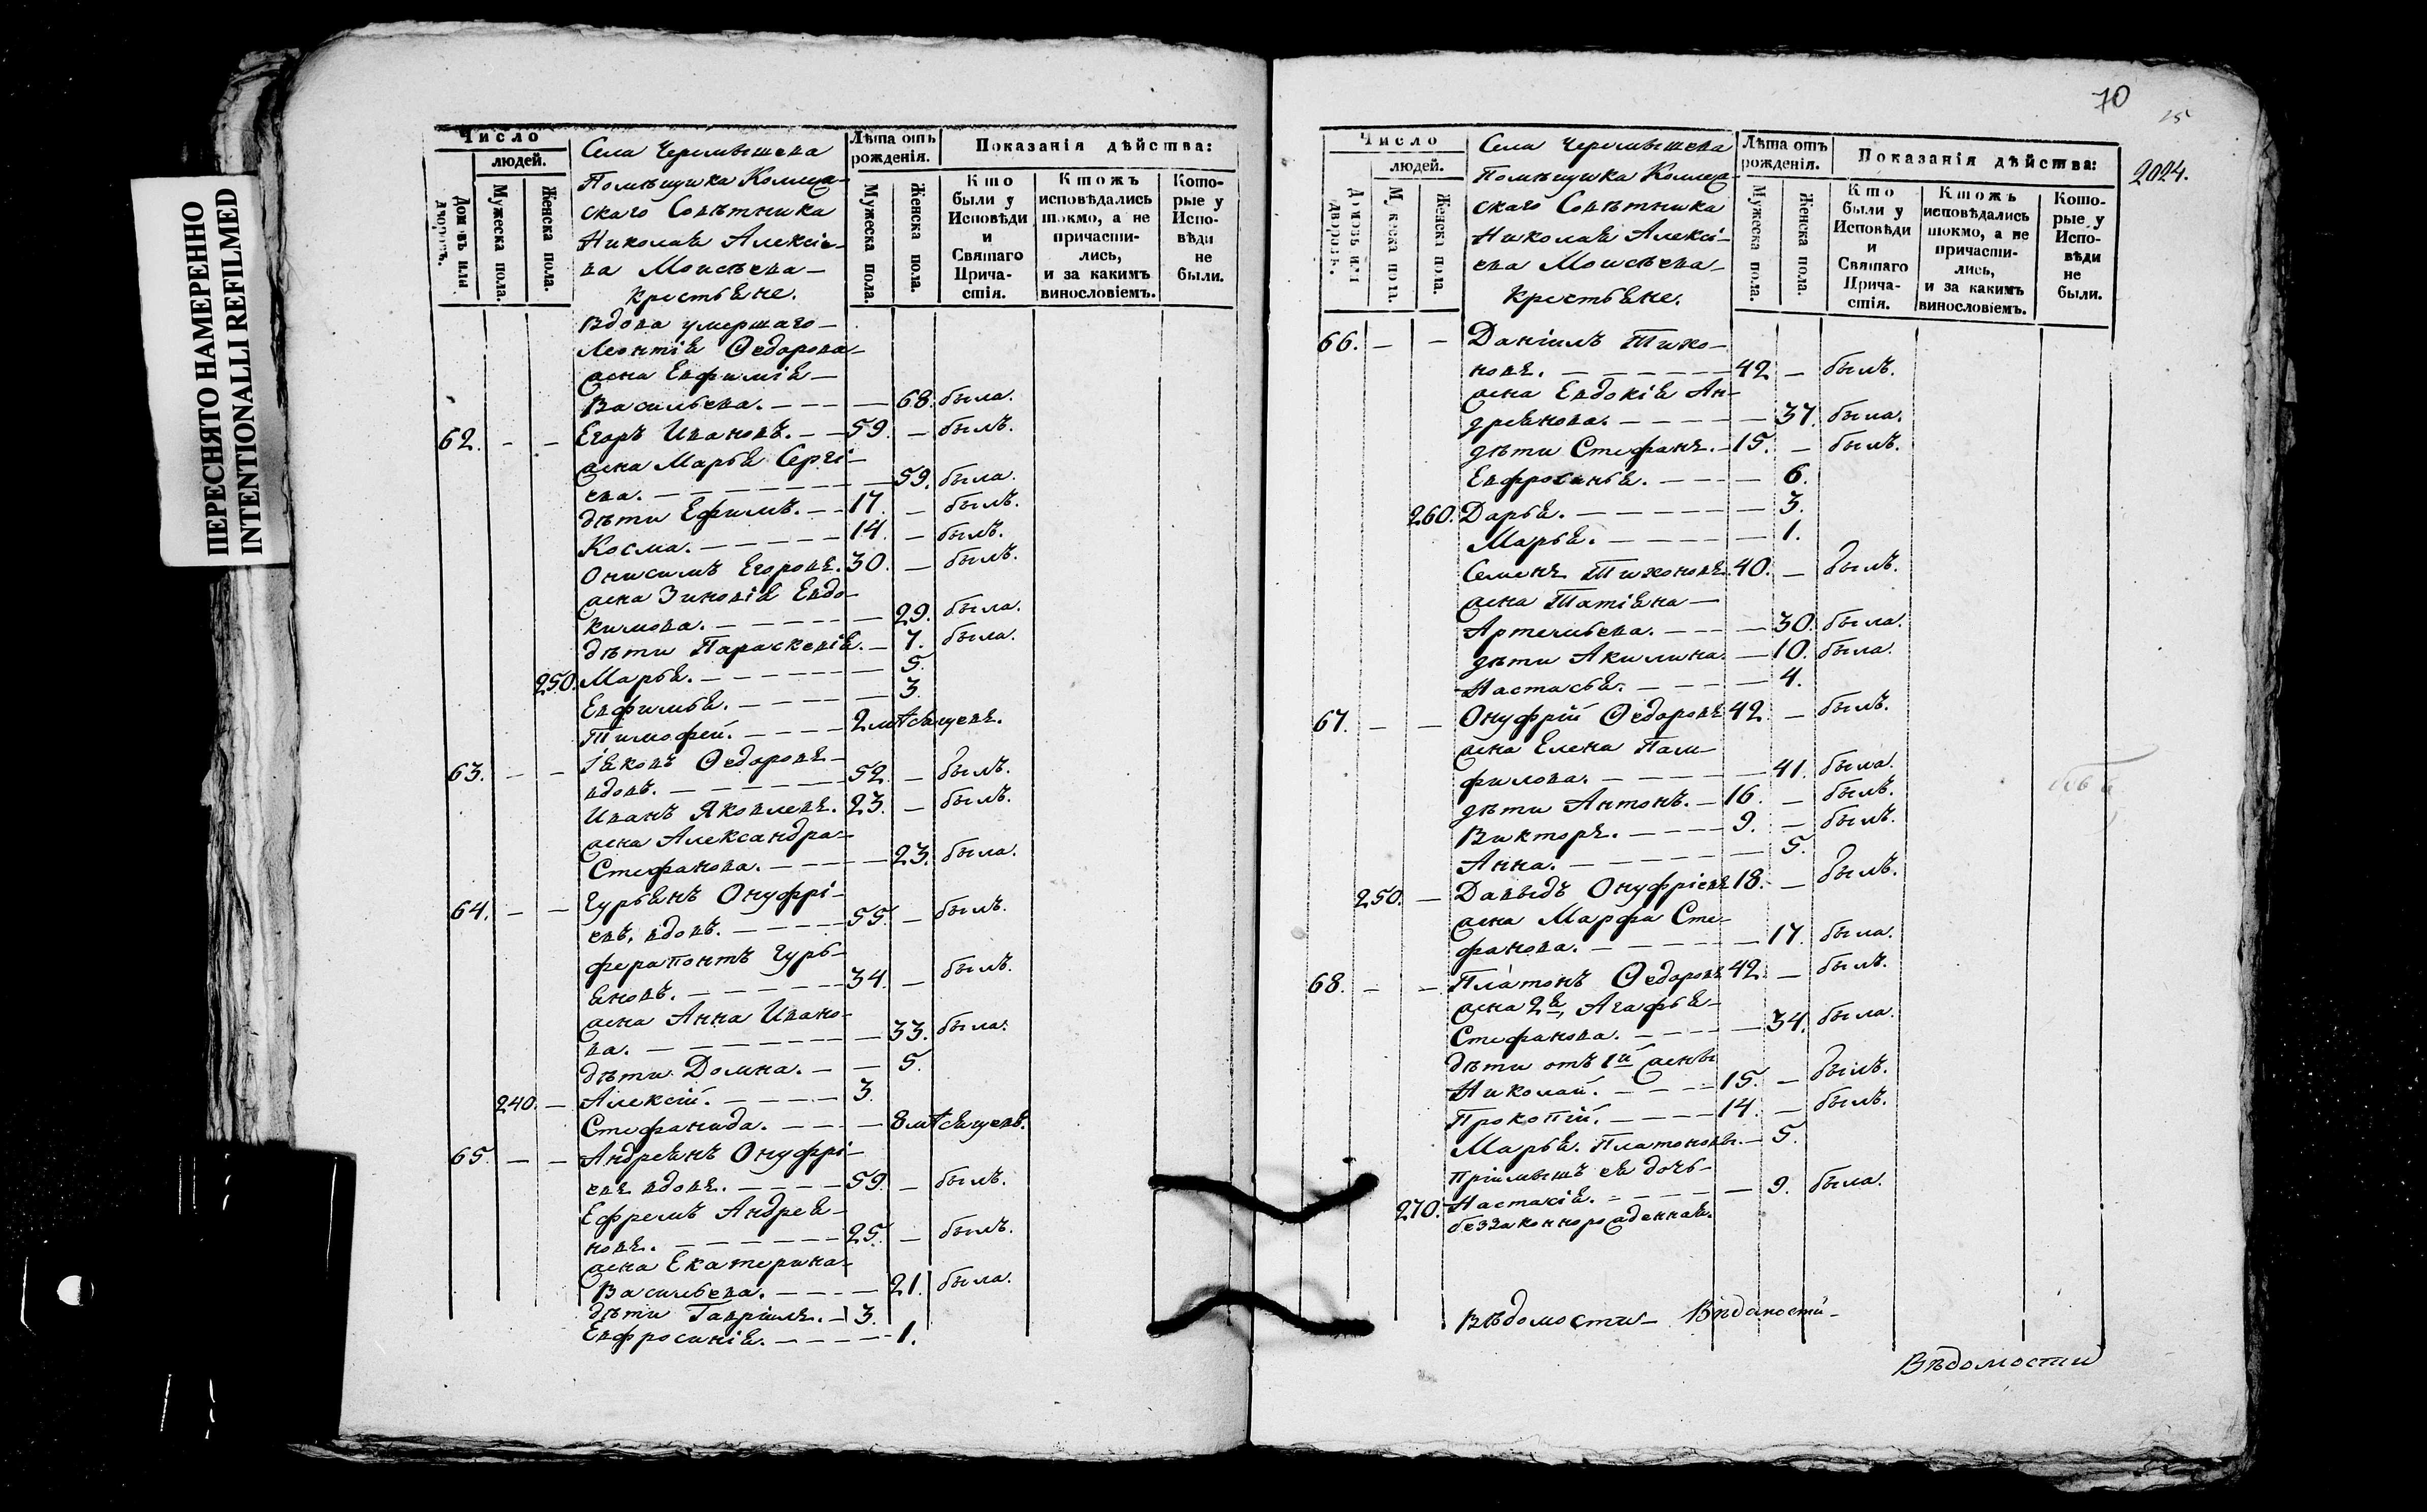 ПЕРЕСНЯТО НАМЕРЕННО
INTENTIONALLI REFILMED
Число
людей.
Домовъ или дворовъ.
Мужеска пола.
Женска пола.
Села Черемышева
Помѣщика Коллеж-
скаго Совѣтника
Николая Алексіе-
ва Моисѣева
крестьяне.
Лѣта отъ рожденія.
Мужеска пола.
Женска пола.
Показанія дѣйства:
Кто были у Исповѣди и Святаго Причастія.
Ктожъ исповѣдались токмо, а не причастились, и за какимъ винословіемъ.
Которые у Исповѣди не были.
Вдова умершаго
Леонтія Ѳедорова
жена Евфимія
Васильева. — 68. была.
62. — — Егоръ Ивановъ. 59. — былъ.
жена Марья Сергі-
ева. — 59. была.
дѣти Ефимъ. 17. — былъ.
Косма. 14. — былъ.
Онисимъ Егоровъ. 30. — былъ.
жена Зиновія Евдо-
кимова. — 29. была.
дѣти Параскевія. — 7. была.
250. Марья. — 5.
Евфимья. — 3.
Тимофей. 2 мѣсяцевъ.
63. — — Іяковъ Ѳедоровъ
вдовъ. 52. — былъ.
Иванъ Яковлевъ. 23. — былъ.
жена Александра
Стефанова. — 23. была.
64. — — Гурьянъ Онуфрі-
евъ, вдовъ. 55. — былъ.
Ферапонтъ Гурь-
яновъ. 34. — былъ.
жена Анна Ивано-
ва. — 33. была.
дѣти Домна. — 5.
240. — Алексій. 3.
Стефанида. — 8 мѣсяцевъ.
65. — — Андреянъ Онуфрі-
евъ вдовъ. 59. — былъ.
Ефремъ Андрея-
новъ. 25. — былъ.
жена Екатерина
Васильева. — 21. была.
дѣти Гавріилъ. 3.
Евфросинія. — 1.
70
15
2024.
Число
людей.
Домовъ или дворовъ.
Мужеска пола.
Женска пола.
Села Черемышева
Помѣщика Коллеж-
скаго Совѣтника
Николая Алексі-
ева Моисѣева
крестьяне.
Лѣта отъ рожденія.
Мужеска пола.
Женска пола.
Показанія дѣйства:
Кто были у Исповѣди и Святаго Причастія.
Ктожъ исповѣдались токмо, а не причастились, и за какимъ винословіемъ.
Которые у Исповѣди не были.
66. — — Даніилъ Тихо-
новъ. 42 — былъ.
жена Евдокія Ан-
дреянова. — 37. была.
дѣти Стефанъ. 15. — былъ.
Евфросинья. — 6.
260. Дарья. — 3.
Марья. — 1.
Семенъ Тихоновъ 40. — былъ.
жена Татіяна
Артемьева. — 30. была.
дѣти Акилина. — 10. была.
Настасья. — 4.
67. — — Онуфрій Ѳедоровъ 42. — былъ.
жена Елена Пам-
филова. — 41. была.
дѣти Антонъ. 16. — былъ.
Викторъ. 9. — былъ.
Анна. — 5.
250. — Давыдъ Онуфріевъ 18. — былъ.
жена Марфа Сте-
фанова. — 17. была.
68. — — Платонъ Ѳедоровъ 42. — былъ.
жена 2я, Агафья
Стефанова. — 34. была.
дѣти отъ 1й жены
Николай. 15. — былъ.
Прокопій. 14. — былъ.
Марья Платонова. — 5.
Пріимышъ ея дочь
270. Настасія. — 9. была.
беззаконнорожденная.
Вѣдомости Вѣдомости
Вѣдомости